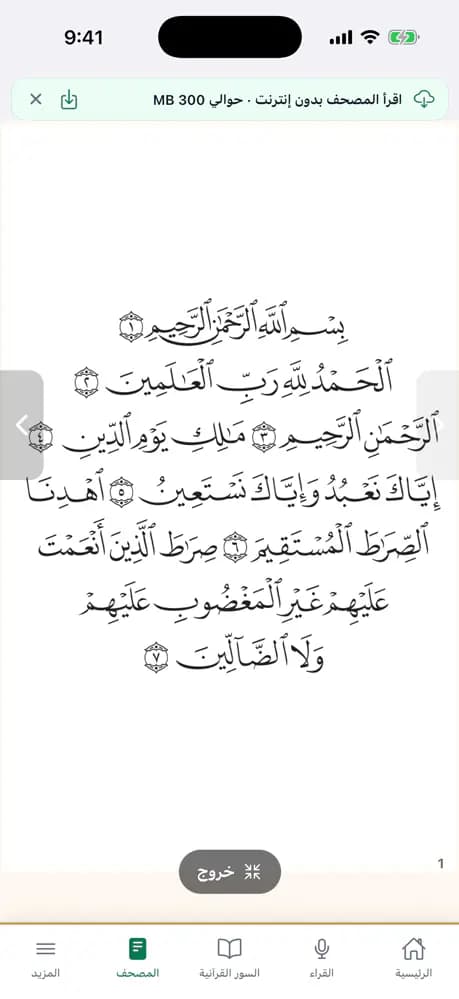 9:41
اقرأ المصحف بدون إنترنت · حوالي 300 MB
بِسْمِ ٱللَّهِ ٱلرَّحْمَٰنِ ٱلرَّحِيمِ ١
ٱلْحَمْدُ لِلَّهِ رَبِّ ٱلْعَٰلَمِينَ ٢
ٱلرَّحْمَٰنِ ٱلرَّحِيمِ ٣ مَٰلِكِ يَوْمِ ٱلدِّينِ ٤
إِيَّاكَ نَعْبُدُ وَإِيَّاكَ نَسْتَعِينُ ٥ ٱهْدِنَا
ٱلصِّرَٰطَ ٱلْمُسْتَقِيمَ ٦ صِرَٰطَ ٱلَّذِينَ أَنْعَمْتَ
عَلَيْهِمْ غَيْرِ ٱلْمَغْضُوبِ عَلَيْهِمْ
وَلَا ٱلضَّآلِّينَ ٧
1
خروج
الرئيسية
القراء
السور القرآنية
المصحف
المزيد